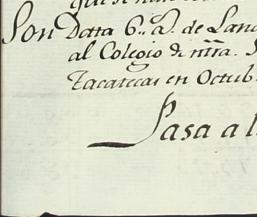 Son Datta 6,, a. de Lana
al Colegio de ntra. S
Zacatecas en Octub
Pasa a l